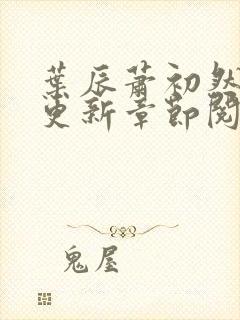 葉辰蕭初然
更新章節閱
鬼屋